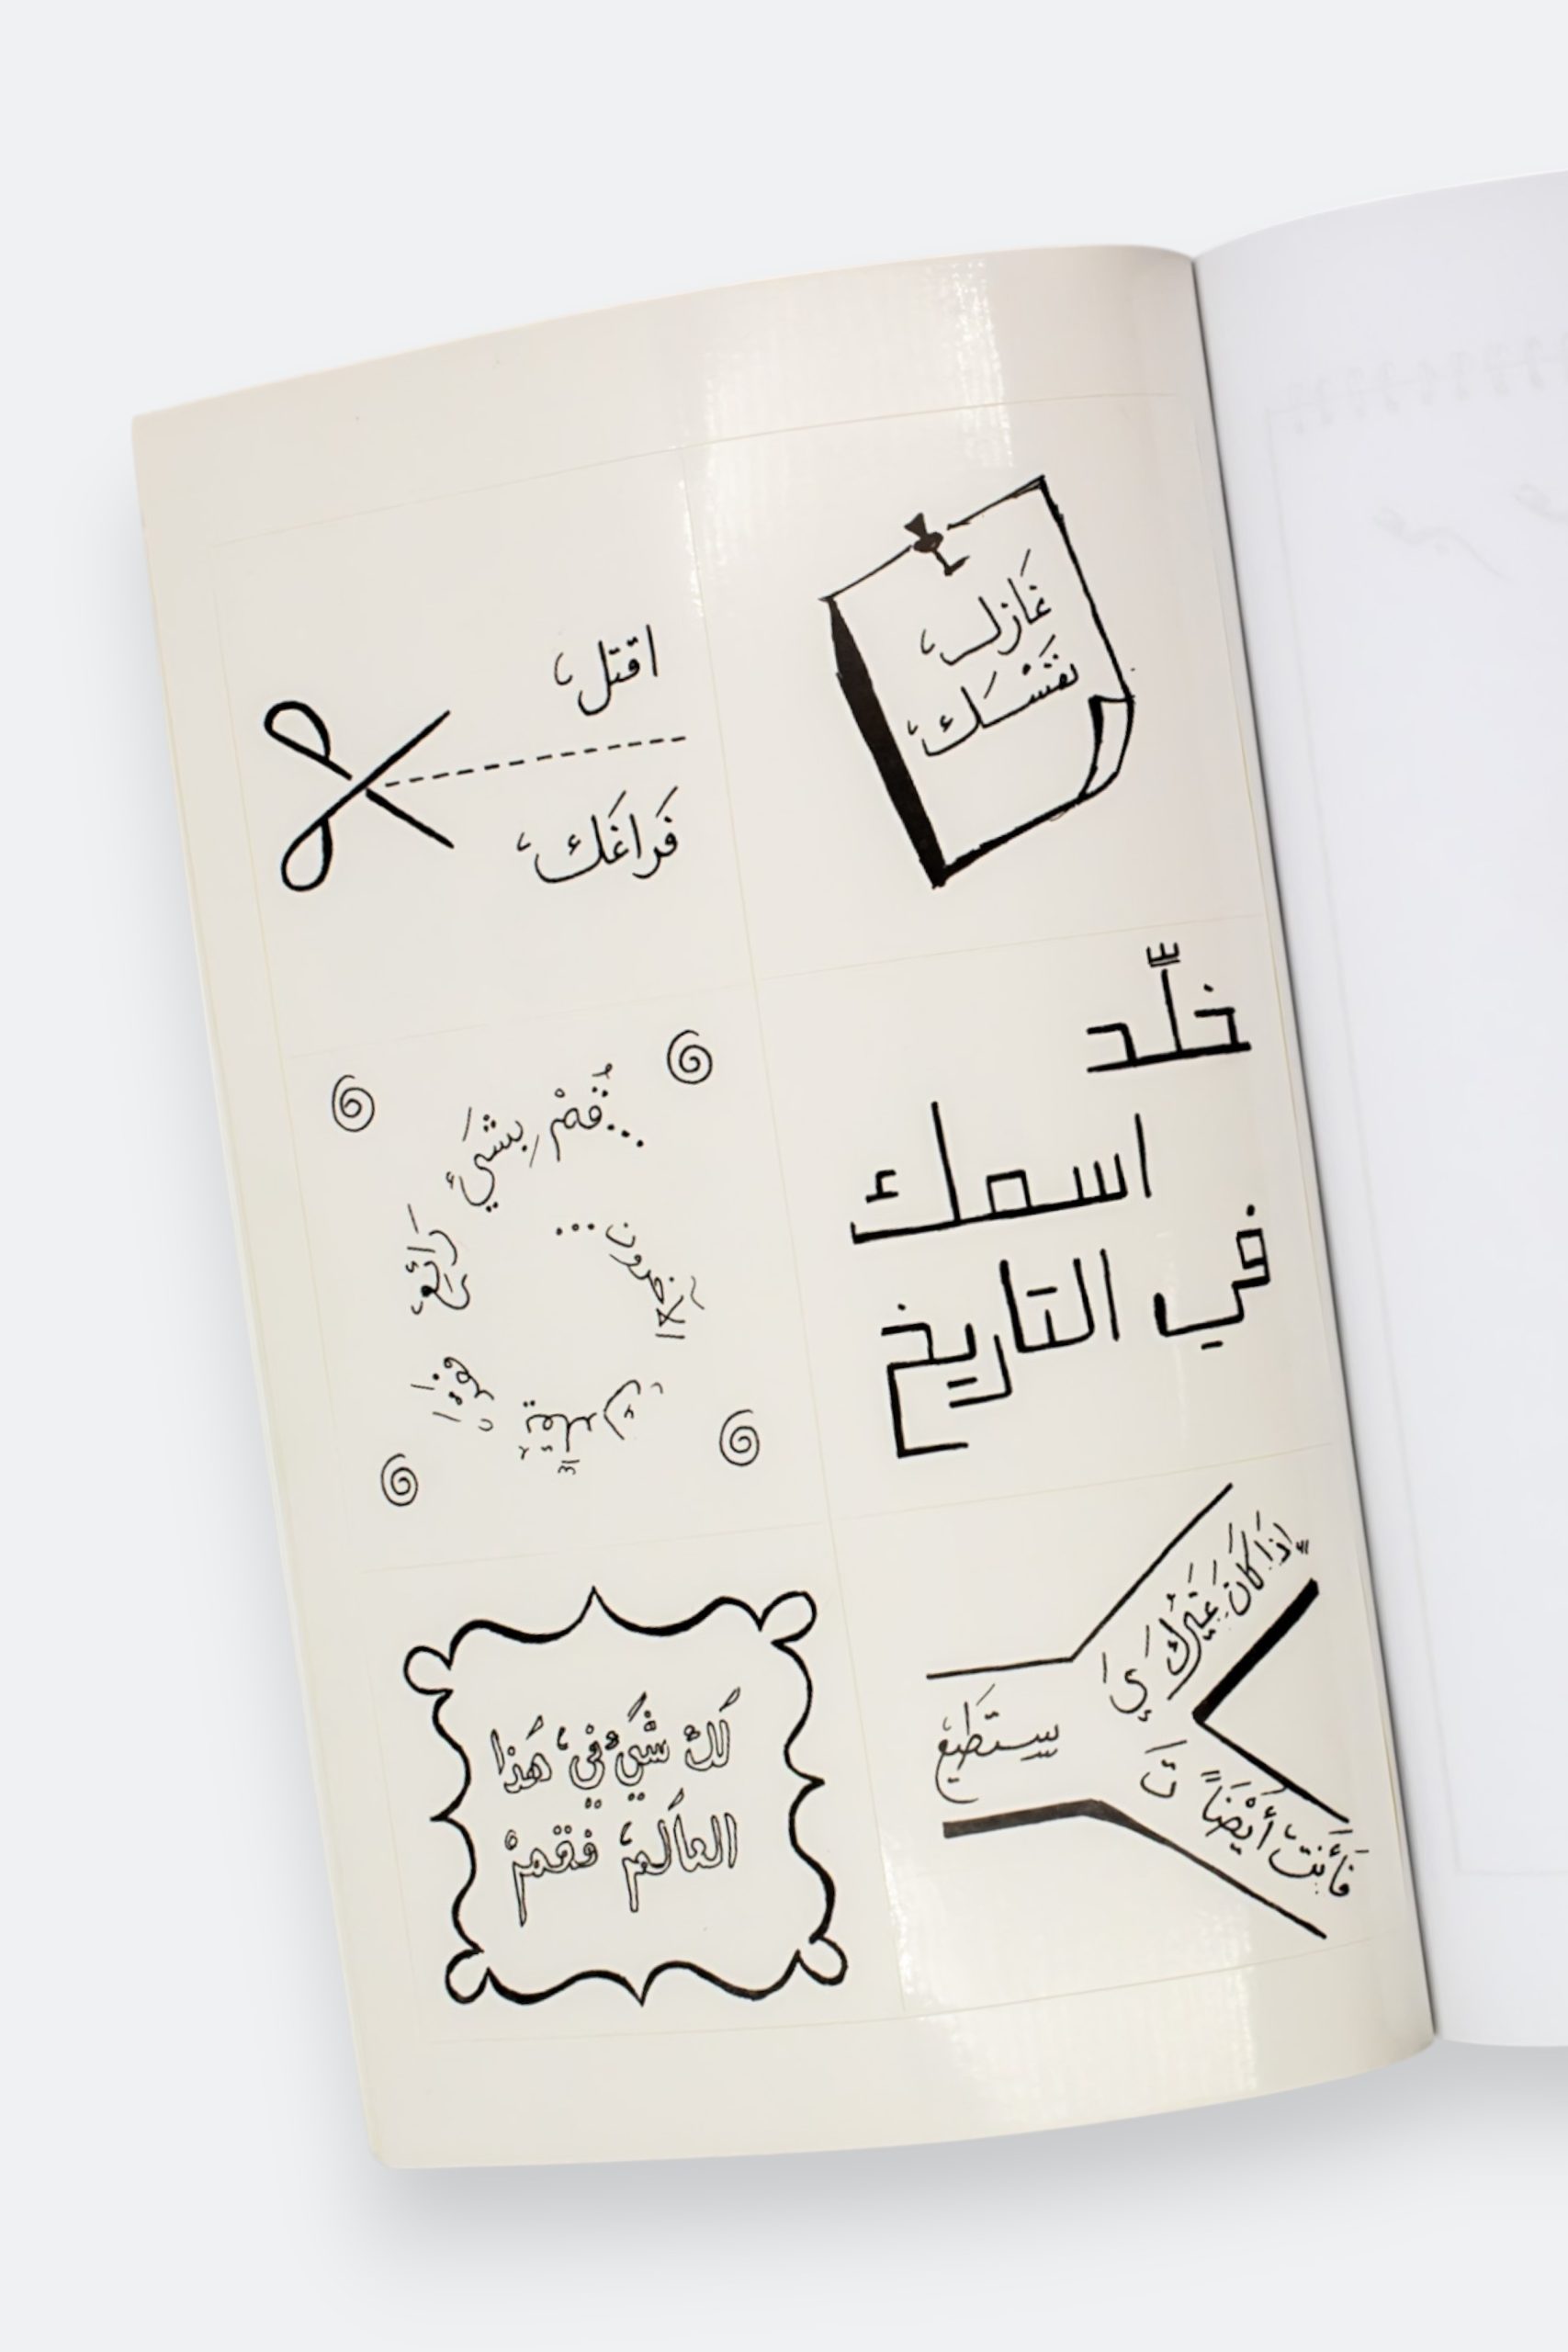 غَازِل
نَفْسَك
اقتل
فَرَاغَك
خلّد
اسمك
في التاريخ
...قُمْ بِشَيْءٍ
رَائِع
الآخرون...
إِذَا كَانَ غَيْرُك يَ
فَأَنت أَيْضَاً تَ
ستَطيع
لَكَ شَيْءٌ في هَذا
العَالَم فَقُمْ